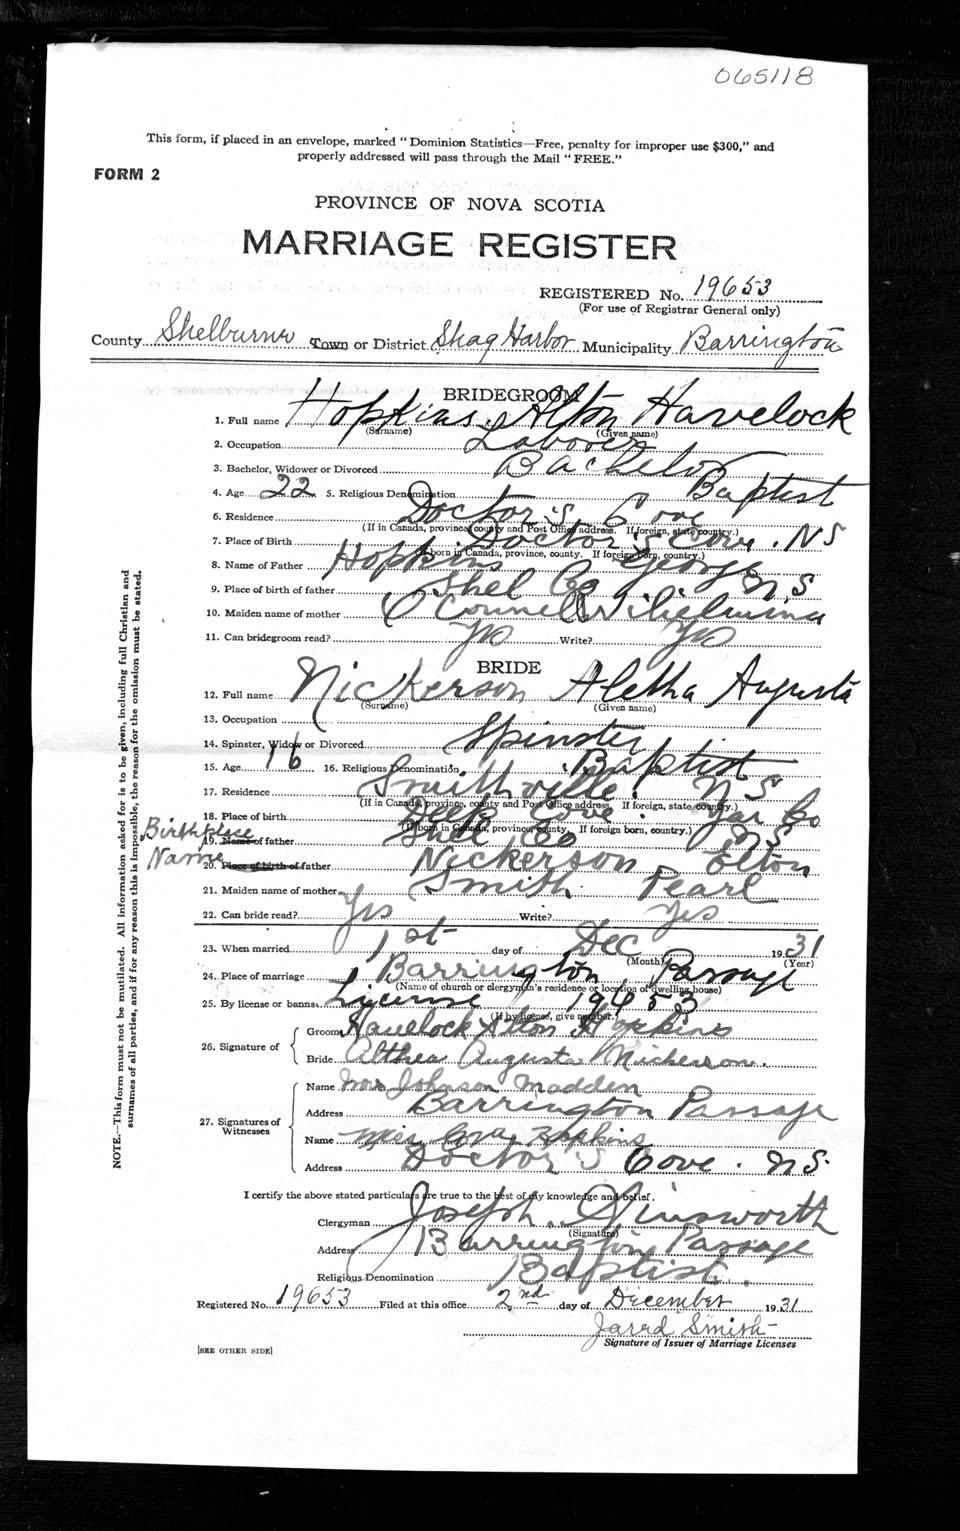 065118
This form, if placed in an envelope, marked "Dominion Statistics—Free, penalty for improper use $300," and
properly addressed will pass through the Mail "FREE."
FORM 2
PROVINCE OF NOVA SCOTIA
MARRIAGE REGISTER
REGISTERED No. 19653
(For use of Registrar General only)
County Shelburne Town or District Shag Harbor Municipality Barrington
BRIDEGROOM
1. Full name Hopkins, Alton Havelock
(Surname) (Given name)
2. Occupation Laborer
3. Bachelor, Widower or Divorced Bachelor
4. Age 22 5. Religious Denomination Baptist
6. Residence Doctor's Cove
(If in Canada, province, county and Post Office address. If foreign, state country.)
7. Place of Birth Doctor's Cove. NS
(If born in Canada, province, county. If foreign born, country.)
8. Name of Father Hopkins George
9. Place of birth of father Shel Co N.S
10. Maiden name of mother O'Connell Wilhelmina
11. Can bridegroom read? Yes Write? Yes
BRIDE
12. Full name Nickerson Aletha Augusta
(Surname) (Given name)
13. Occupation
14. Spinster, Widow or Divorced Spinster
15. Age 16 16. Religious Denomination Baptist
17. Residence Smithville. N S
(If in Canada, province, county and Post Office address. If foreign, state country.)
18. Place of birth Cove. Yar Co
(If born in Canada, province, county. If foreign born, country.)
Birthplace 19. Name of father Shel Co NS
Name 20. Place of birth of father Nickerson Elton
21. Maiden name of mother Smith Pearl
22. Can bride read? Yes Write? Yes
23. When married 1st day of Dec 1931
(Month) (Year)
24. Place of marriage Barrington Passage
(Name of church or clergyman's residence or location of dwelling house)
25. By license or banns License 19653
(If by license, give number.)
26. Signature of
Groom Havelock Alton Hopkins
Bride Althea Augusta Nickerson.
27. Signatures of Witnesses
Name Mrs Johnson Madden
Address Barrington Passage
Name Miss Hopkins
Address Doctor's Cove. NS.
I certify the above stated particulars are true to the best of my knowledge and belief.
Clergyman Joseph Ainsworth
(Signature)
Address Barrington Passage
Religious Denomination Baptist.
Registered No. 19653 Filed at this office 2nd day of December 1931
Jared Smith
Signature of Issuer of Marriage Licenses
[SEE OTHER SIDE]
NOTE.—This form must not be mutilated. All information asked for is to be given, including full Christian and
surnames of all parties, and if for any reason this is impossible, the reason for the omission must be stated.